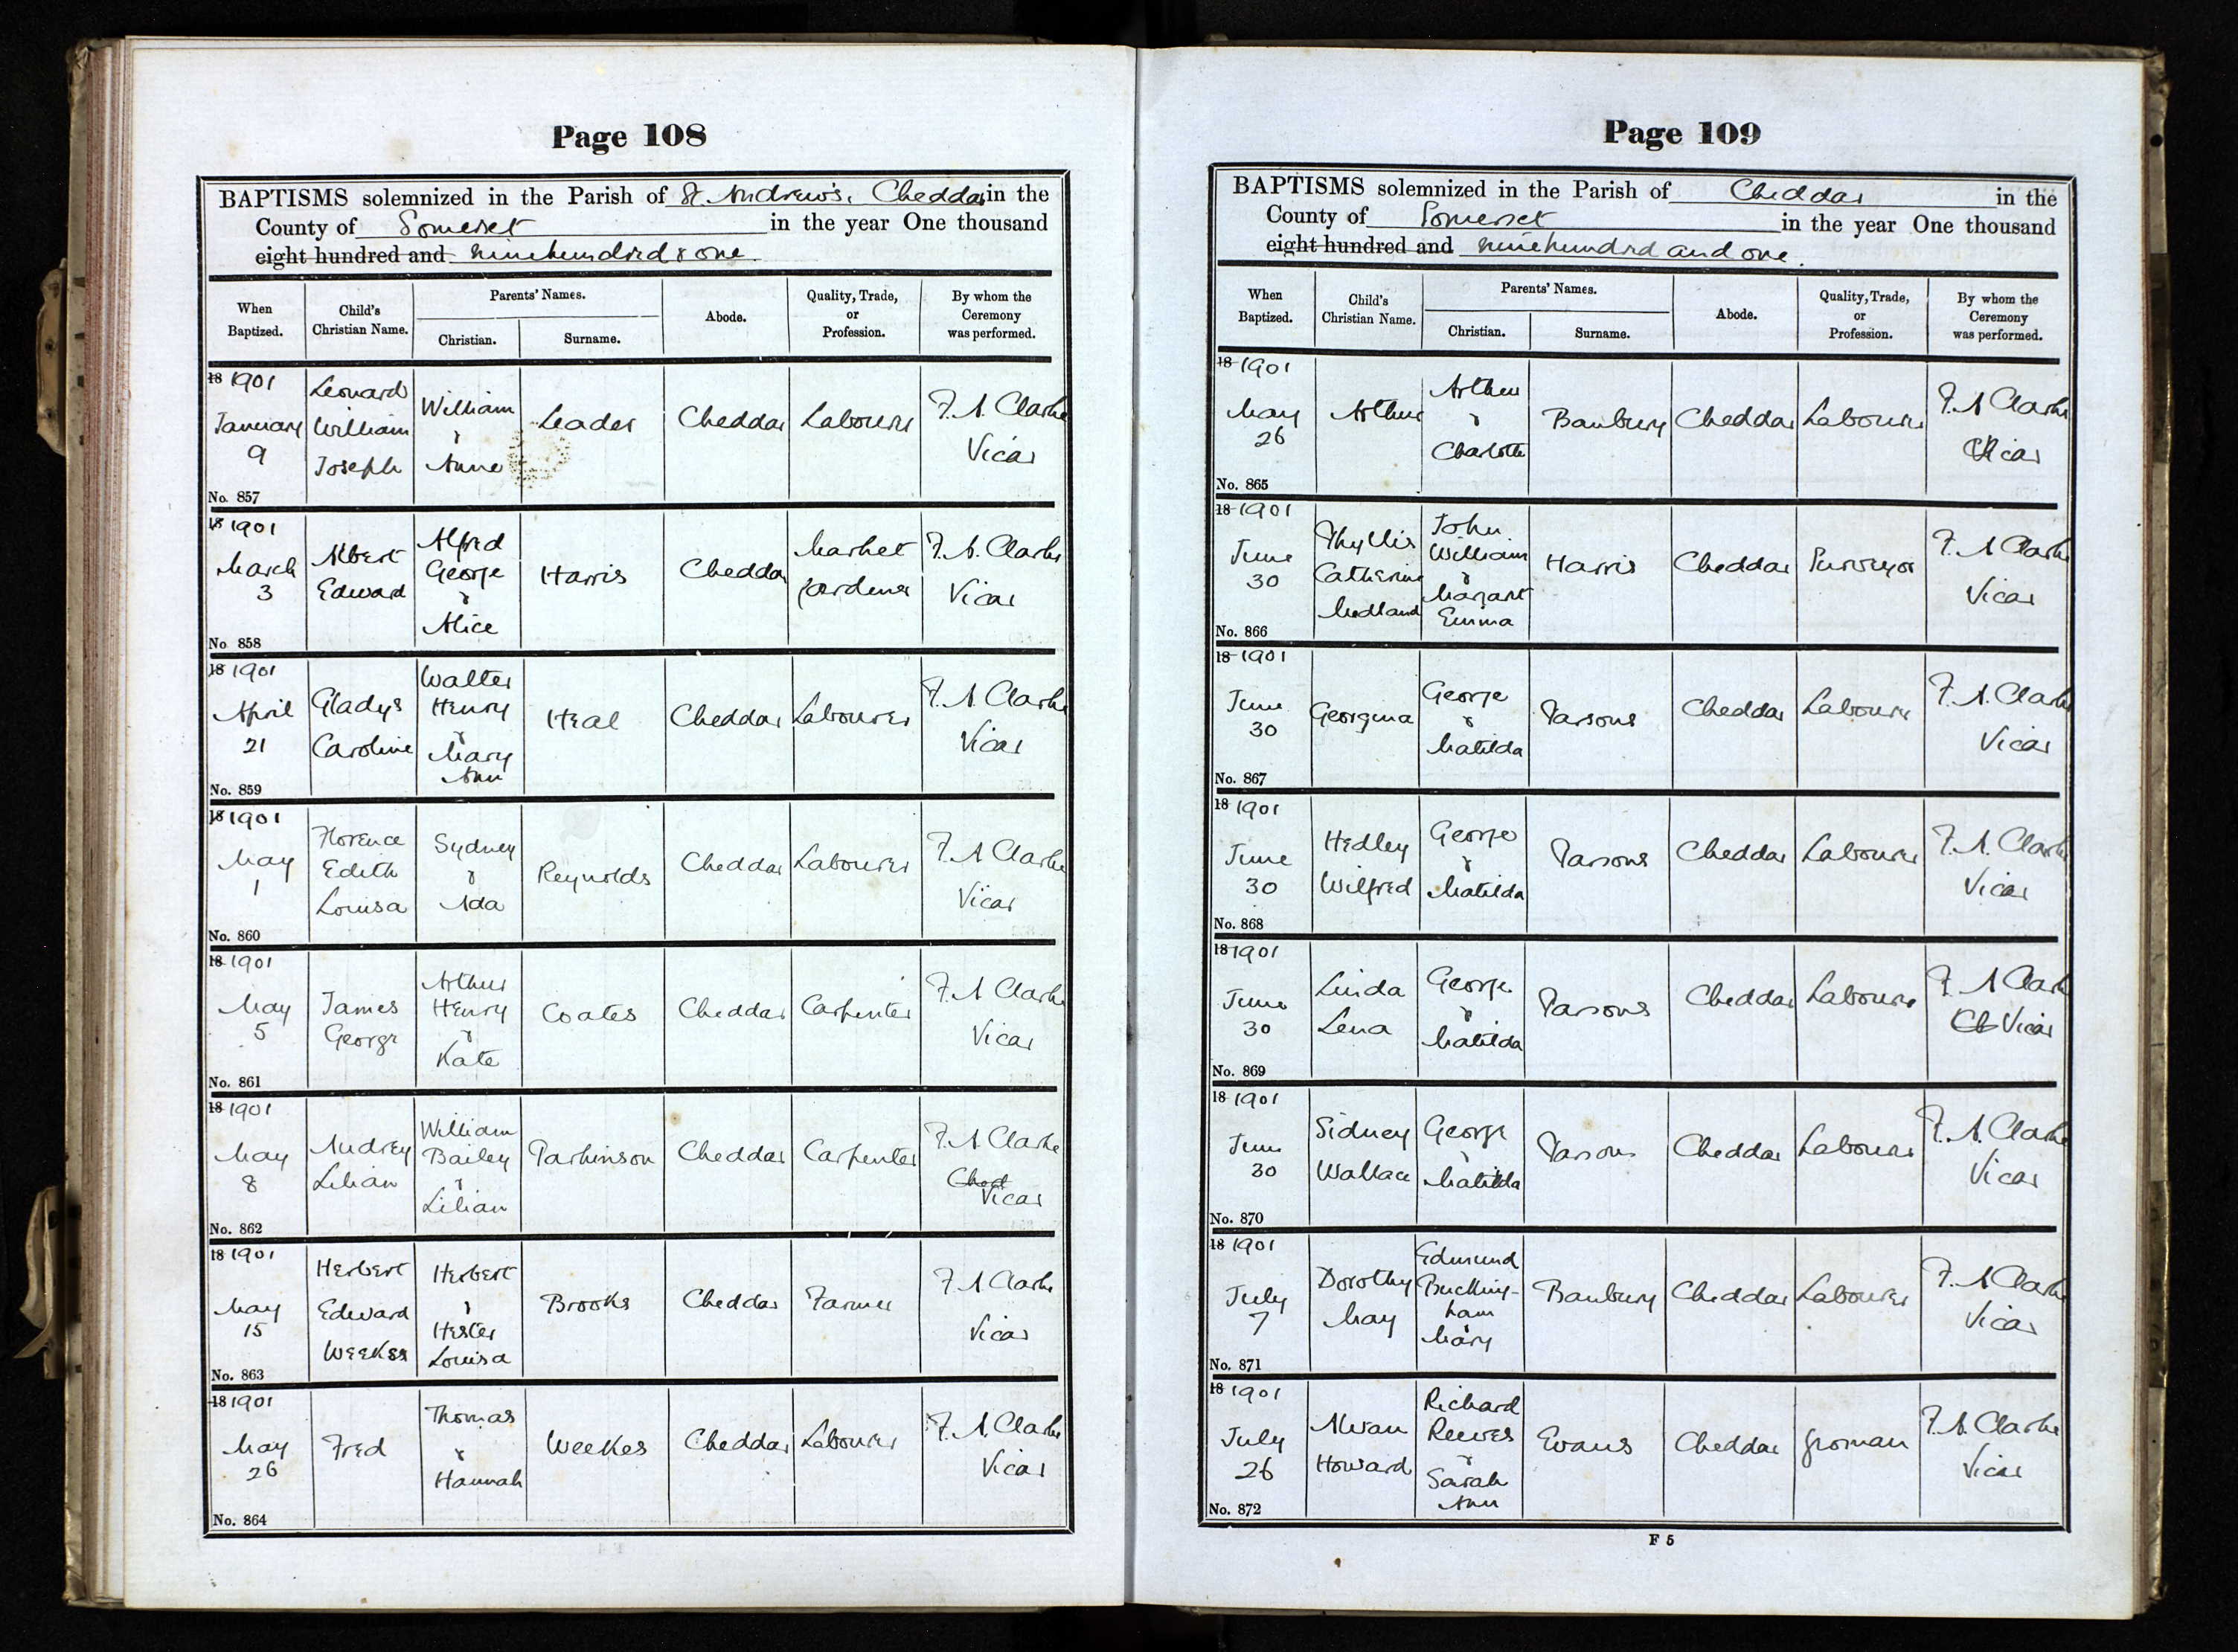 Page 108
BAPTISMS solemnized in the Parish of St. Andrew's, Cheddar in the
County of Somerset in the year One thousand
eight hundred and ninehundred & one.
When Baptized. Child's Christian Name. Parents' Names. Christian. Surname. Abode. Quality, Trade, or Profession. By whom the Ceremony was performed.
18 1901 January 9 Leonard William Joseph William & Anne Leader Cheddar Labourer F. A. Clarke Vicar
No. 857
18 1901 March 3 Albert Edward Alfred George & Alice Harris Cheddar Market gardener F. A. Clarke Vicar
No 858
18 1901 April 21 Gladys Caroline Walter Henry & Mary Ann Heal Cheddar Labourer F. A. Clarke Vicar
No. 859
18 1901 May 1 Florence Edith Louisa Sydney & Ada Reynolds Cheddar Labourer F. A Clarke Vicar
No. 860
18 1901 May 5 James George Arthur Henry & Kate Coates Cheddar Carpenter F. A Clarke Vicar
No. 861
18 1901 May 8 Audrey Lilian William Bailey & Lilian Parkinson Cheddar Carpenter F. A Clarke Ched Vicar
No. 862
18 1901 May 15 Herbert Edward Weekes Herbert & Hester Louisa Brooks Cheddar Farmer F. A Clarke Vicar
No. 863
18 1901 May 26 Fred Thomas & Hannah Weekes Cheddar Labourer F. A. Clarke Vicar
No. 864
Page 109
BAPTISMS solemnized in the Parish of Cheddar in the
County of Somerset in the year One thousand
eight hundred and ninehundred and one.
When Baptized. Child's Christian Name. Parents' Names. Christian. Surname. Abode. Quality, Trade, or Profession. By whom the Ceremony was performed.
18 1901 May 26 Arthur Arthur & Charlotte Banbury Cheddar Labourer F. A Clarke Vicar
No. 865
18 1901 June 30 Phyllis Catherine Medland John William & Margaret Emma Harris Cheddar Surveyor F. A Clarke Vicar
No. 866
18 1901 June 30 Georgina George & Matilda Parsons Cheddar Labourer F. A. Clarke Vicar
No. 867
18 1901 June 30 Hedley Wilfred George & Matilda Parsons Cheddar Labourer F. A. Clarke Vicar
No. 868
18 1901 June 30 Linda Lena George & Matilda Parsons Cheddar Labourer F. A Clarke Ch Vicar
No. 869
18 1901 June 30 Sidney Wallace George & Matilda Parsons Cheddar Labourer F. A. Clarke Vicar
No. 870
18 1901 July 7 Dorothy May Edmund Bucking-ham & Mary Banbury Cheddar Labourer F. A Clarke Vicar
No. 871
18 1901 July 26 Alwan Howard Richard Reeves & Sarah Ann Evans Cheddar groman F. A. Clarke Vicar
No. 872
F 5